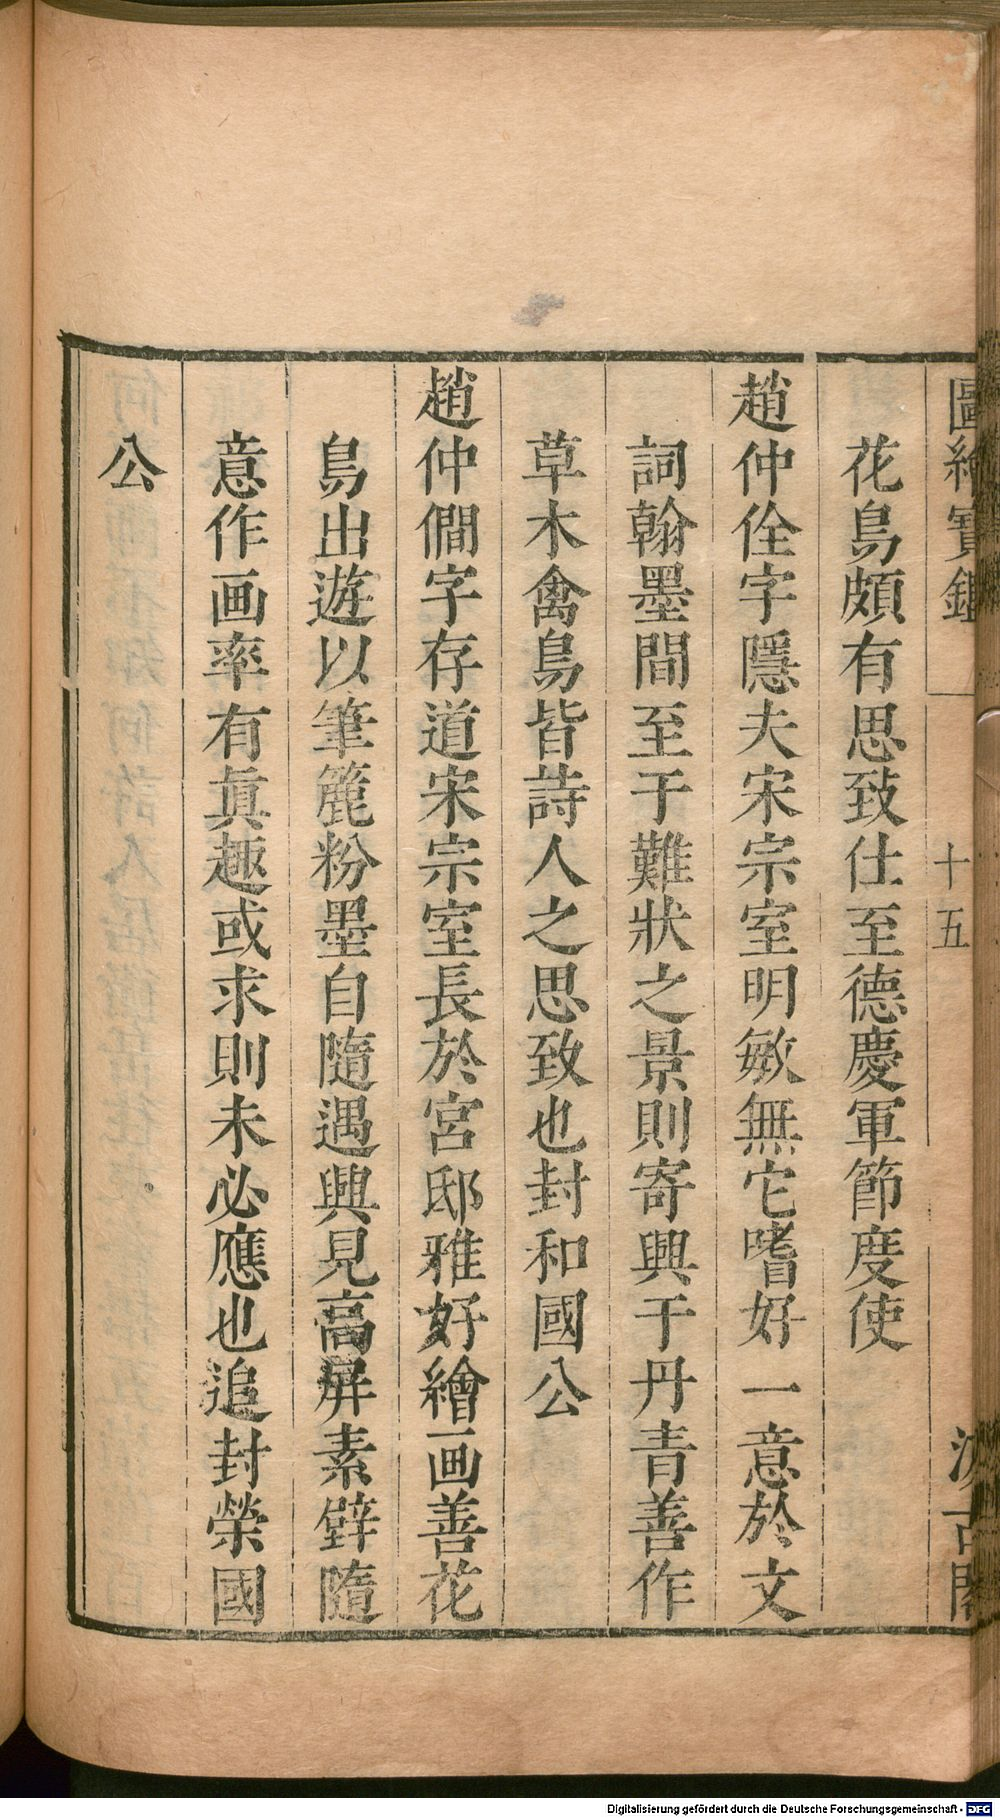 圖繪寶鑑
十五
汲古閣
花鳥頗有思致仕至德慶軍節度使
趙仲佺字隱夫宋宗室明敏無它嗜好一意於文
詞翰墨間至于難狀之景則寄興于丹青善作
草木禽鳥皆詩人之思致也封和國公
趙仲僩字存道宋宗室長於宮邸雅好繪画善花
鳥出遊以筆簏粉墨自隨遇興見高屏素壁隨
意作画率有眞趣或求則未必應也追封榮國
公
Digitalisierung gefördert durch die Deutsche Forschungsgemeinschaft - DFG